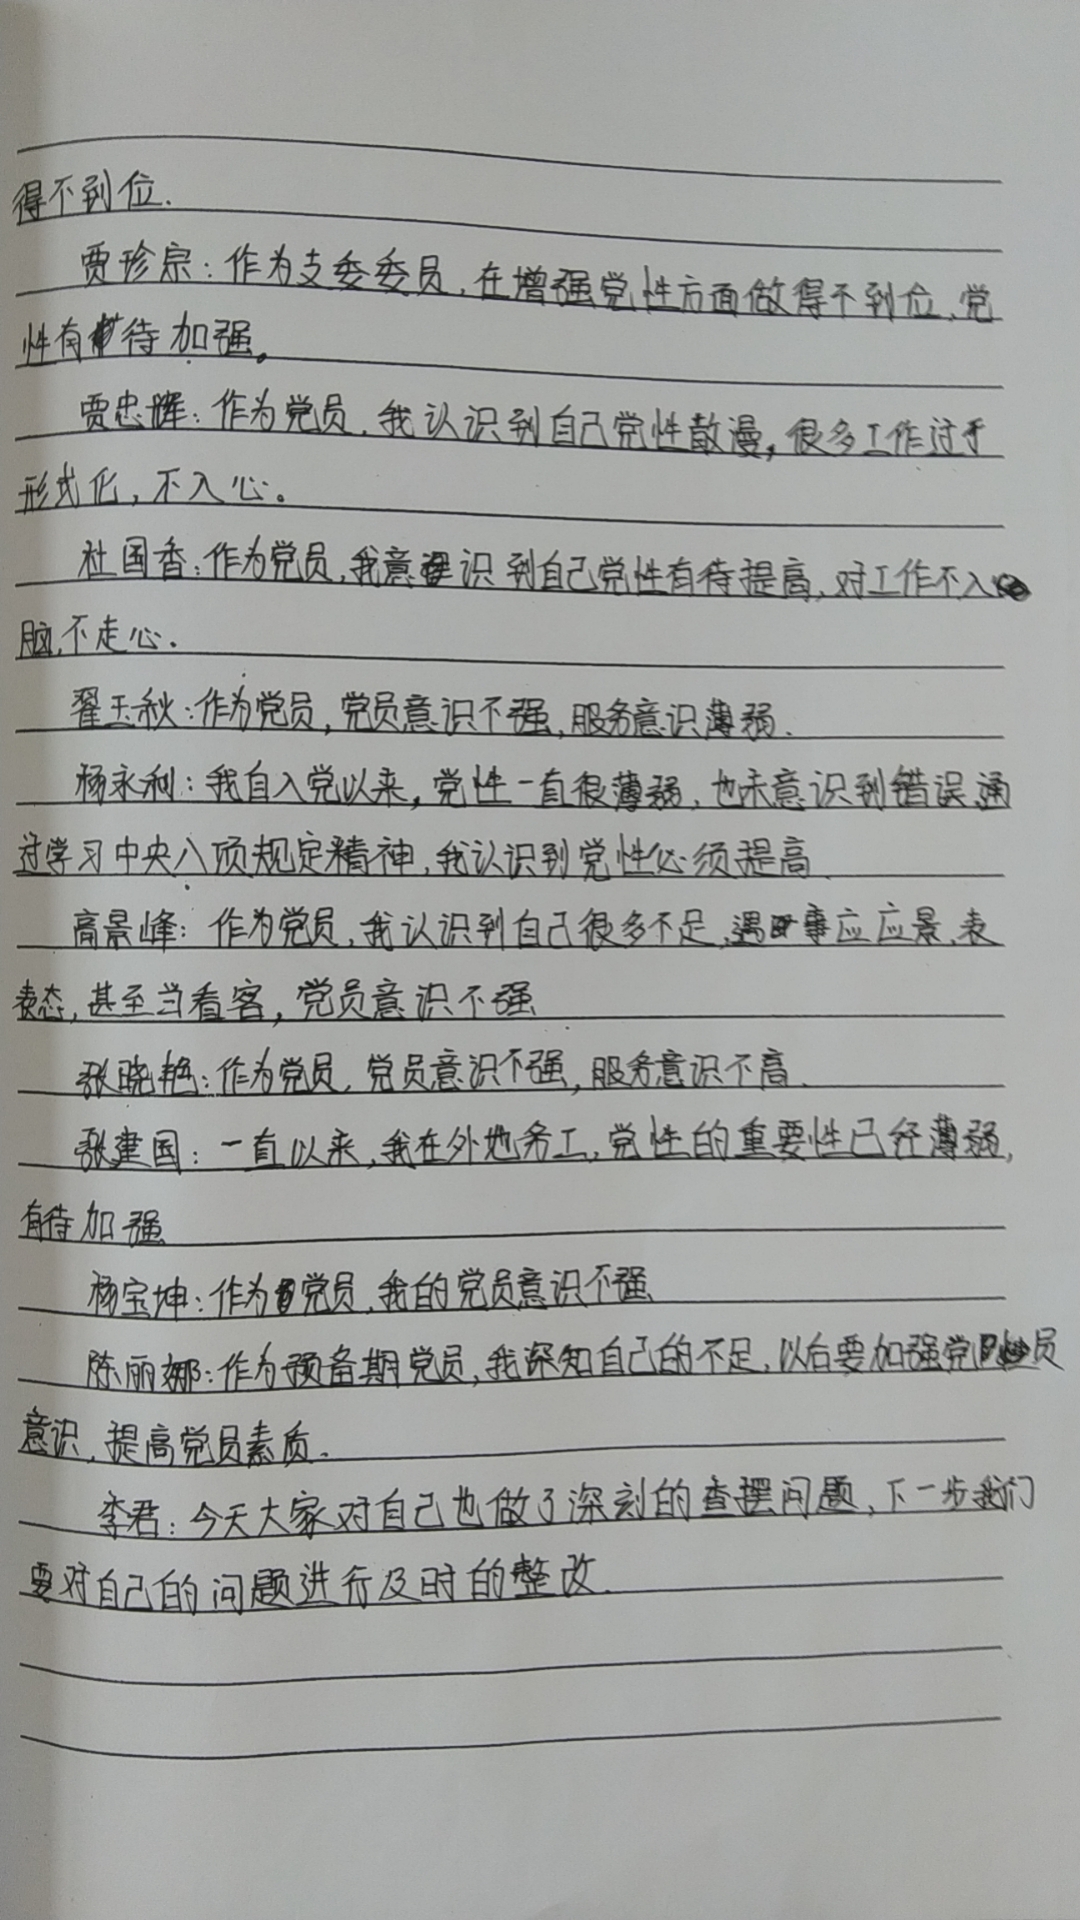 得不到位.
贾珍宗:作为支委委员,在增强党性方面做得不到位,党
性有待加强。
贾忠辉:作为党员,我认识到自己党性散漫,很多工作过于
形式化,不入心。
杜国香:作为党员,我意识到自己党性有待提高,对工作不入
脑,不走心.
翟玉秋:作为党员,党员意识不强,服务意识薄弱.
杨永利:我自入党以来,党性一直很薄弱,也未意识到错误,通
过学习中央八项规定精神,我认识到党性必须提高.
高景峰:作为党员,我认识到自己很多不足,遇事应应景,表
表态,甚至当看客,党员意识不强
张晓艳:作为党员,党员意识不强,服务意识不高.
张建国:一直以来,我在外地务工,党性的重要性已经薄弱,
有待加强
杨宝坤:作为党员,我的党员意识不强
陈丽娜:作为预备期党员,我深知自己的不足,以后要加强党员
意识,提高党员素质.
李君:今天大家对自己也做了深刻的查摆问题,下一步我们
要对自己的问题进行及时的整改.